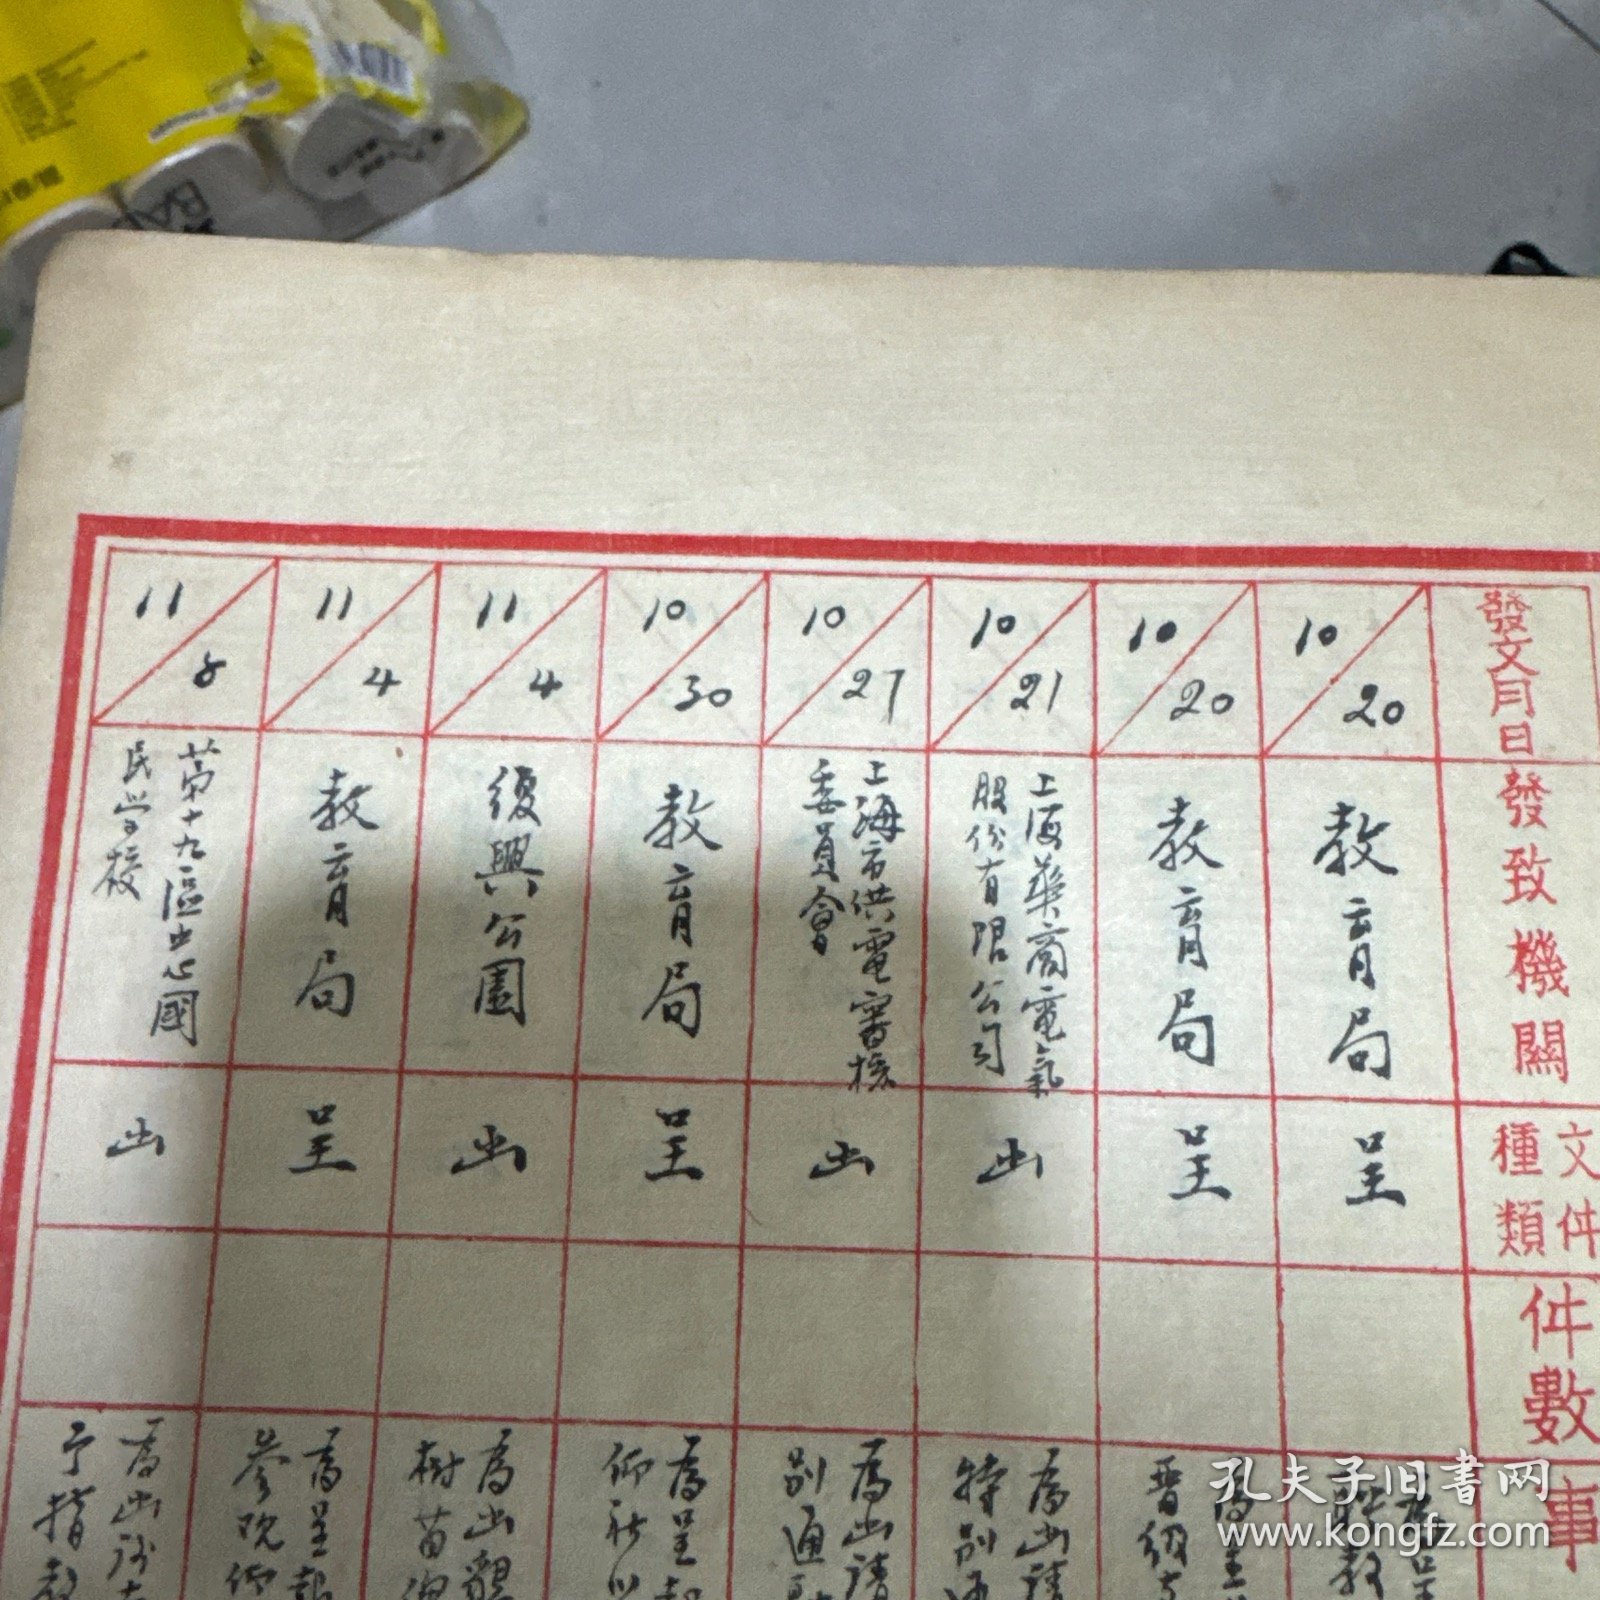 發文月日
發致機關
文件
種類
件數
事
10/20
教育局
呈
10/20
教育局
呈
晋級
10/21
上海華商電氣
股份有限公司
函
為函請
特別通
10/27
上海市供電審核
委員會
函
為函請
別通
10/30
教育局
呈
為呈
仰祈
11/4
復興公園
函
為函
樹苗
11/4
教育局
呈
為呈報
參观
11/5
第十九區中心國
民学校
函
為函
予指教
孔夫子旧书网
www.kongfz.com